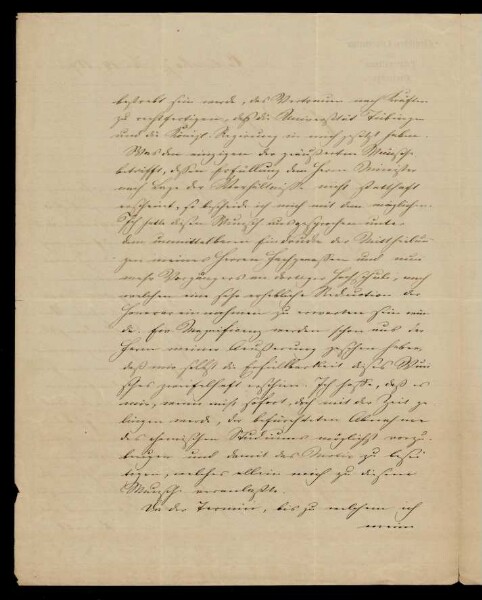 bestrebt sein werde, das Vertrauen nach Kräften
zu rechtfertigen, daß die Universität Tübingen
und die Königl. Regierung in mich gesetzt haben.
Was den einzigen der geäußerten Wünsche
betrifft, dessen Erfüllung dem Herrn Minister
nach Lage der Verhältnisse nicht statthaft
erscheint, so bescheide ich mich mit dem möglichen.
Ich hatte diesen Wunsch ausgesprochen unter
dem unmittelbaren Eindrucke der Mittheilun-
gen meines Herrn Fachgenossen und nun-
mehr Vorgängers an dortiger Hochschule, nach
welchen eine sehr erhebliche Reduction der
Honorareinnahmen zu erwarten sein wür-
de. Ew. Magnificenz werden schon aus der
Form meiner Äußerung gesehen haben,
daß mir selbst die Erfüllbarkeit dieses Wun-
sches zweifelhaft erschien. Ich hoffe, daß es
mir, wenn nicht sofort, doch mit der Zeit ge-
lingen werde, der befürchteten Abnahme
des chemischen Studiums möglichst vorzu-
beugen und damit das Motiv zu besei-
tigen, welches allein mich zu diesem
Wunsch veranlaßte.
Um der Termin, bis zu welchem ich
meine